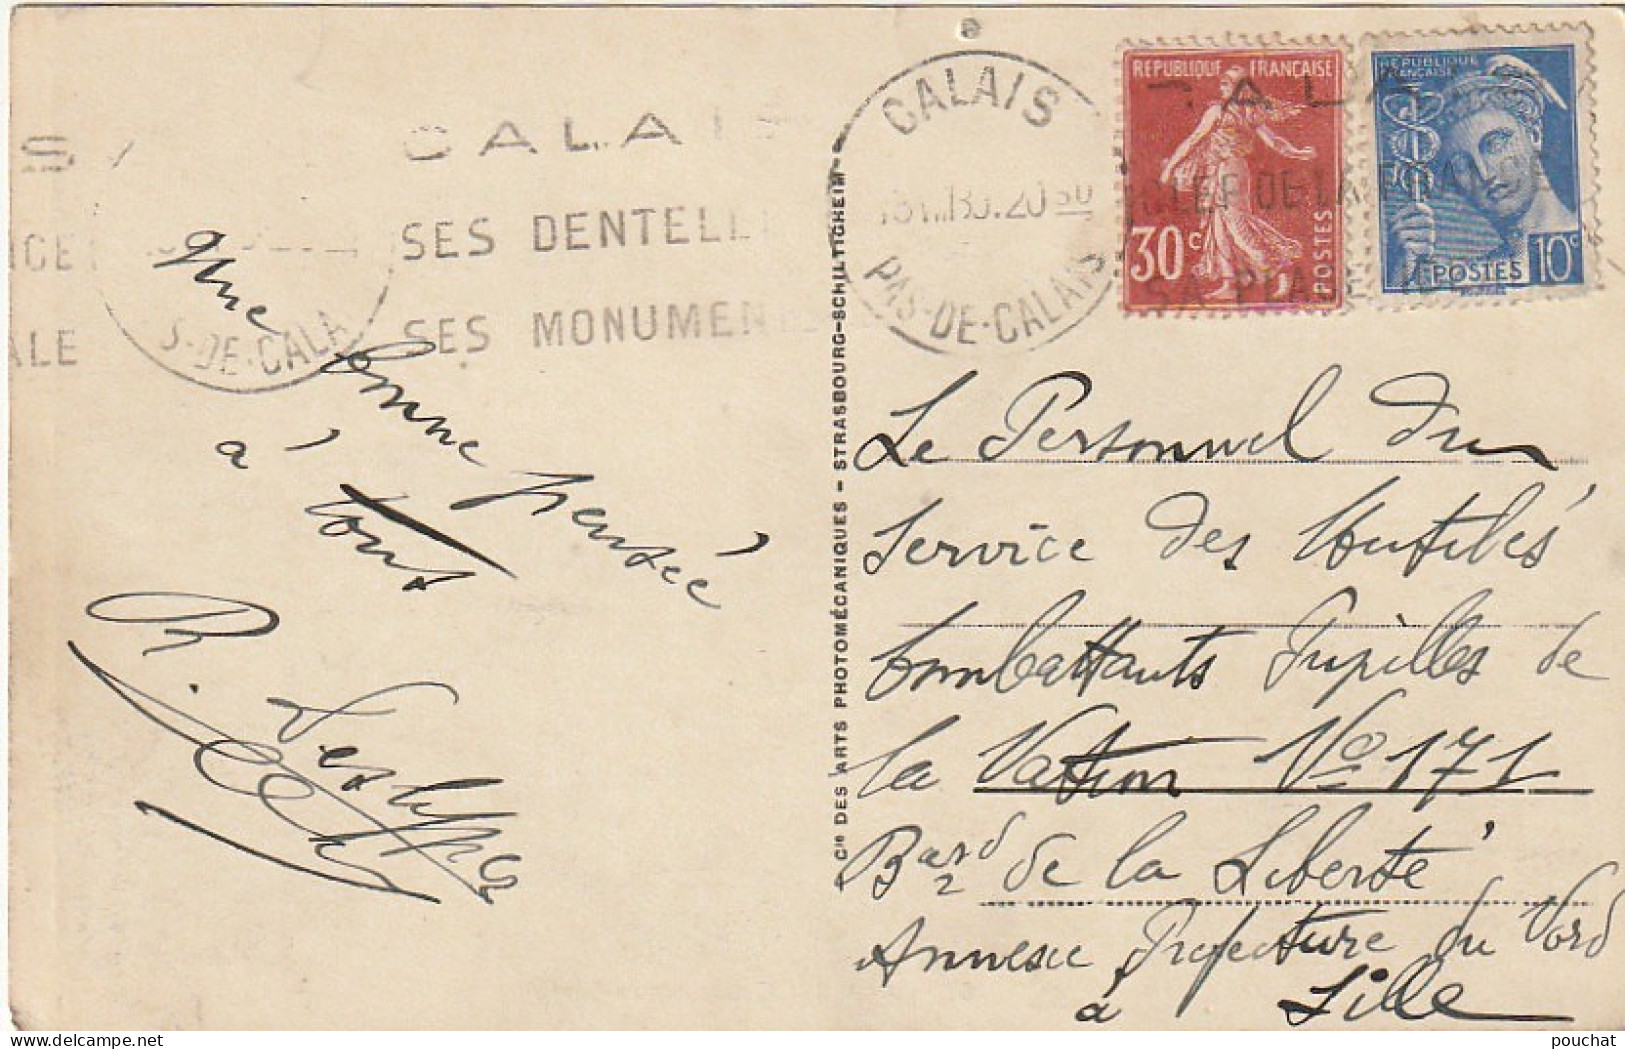 CALAIS
SES DENTELL
SES MONUMEN
S
NCE
ALE
S-DE-CALA
CALAIS
20 30
PAS-DE-CALAIS
CLEF DE LA FRANCE
SA PLAGE
REPUBLIQUE FRANÇAISE
30c
POSTES
REPUBLIQUE
FRANÇAISE
POSTES 10c
Une bonne pensée
à tous
Cie DES ARTS PHOTOMÉCANIQUES - STRASBOURG-SCHILTIGHEIM
Le Personnel du
Service des Mutilés
Combattants Pupilles de
la Nation No 171
Bard de la Liberté
Annexe Préfecture du Nord
à Lille
pouchat